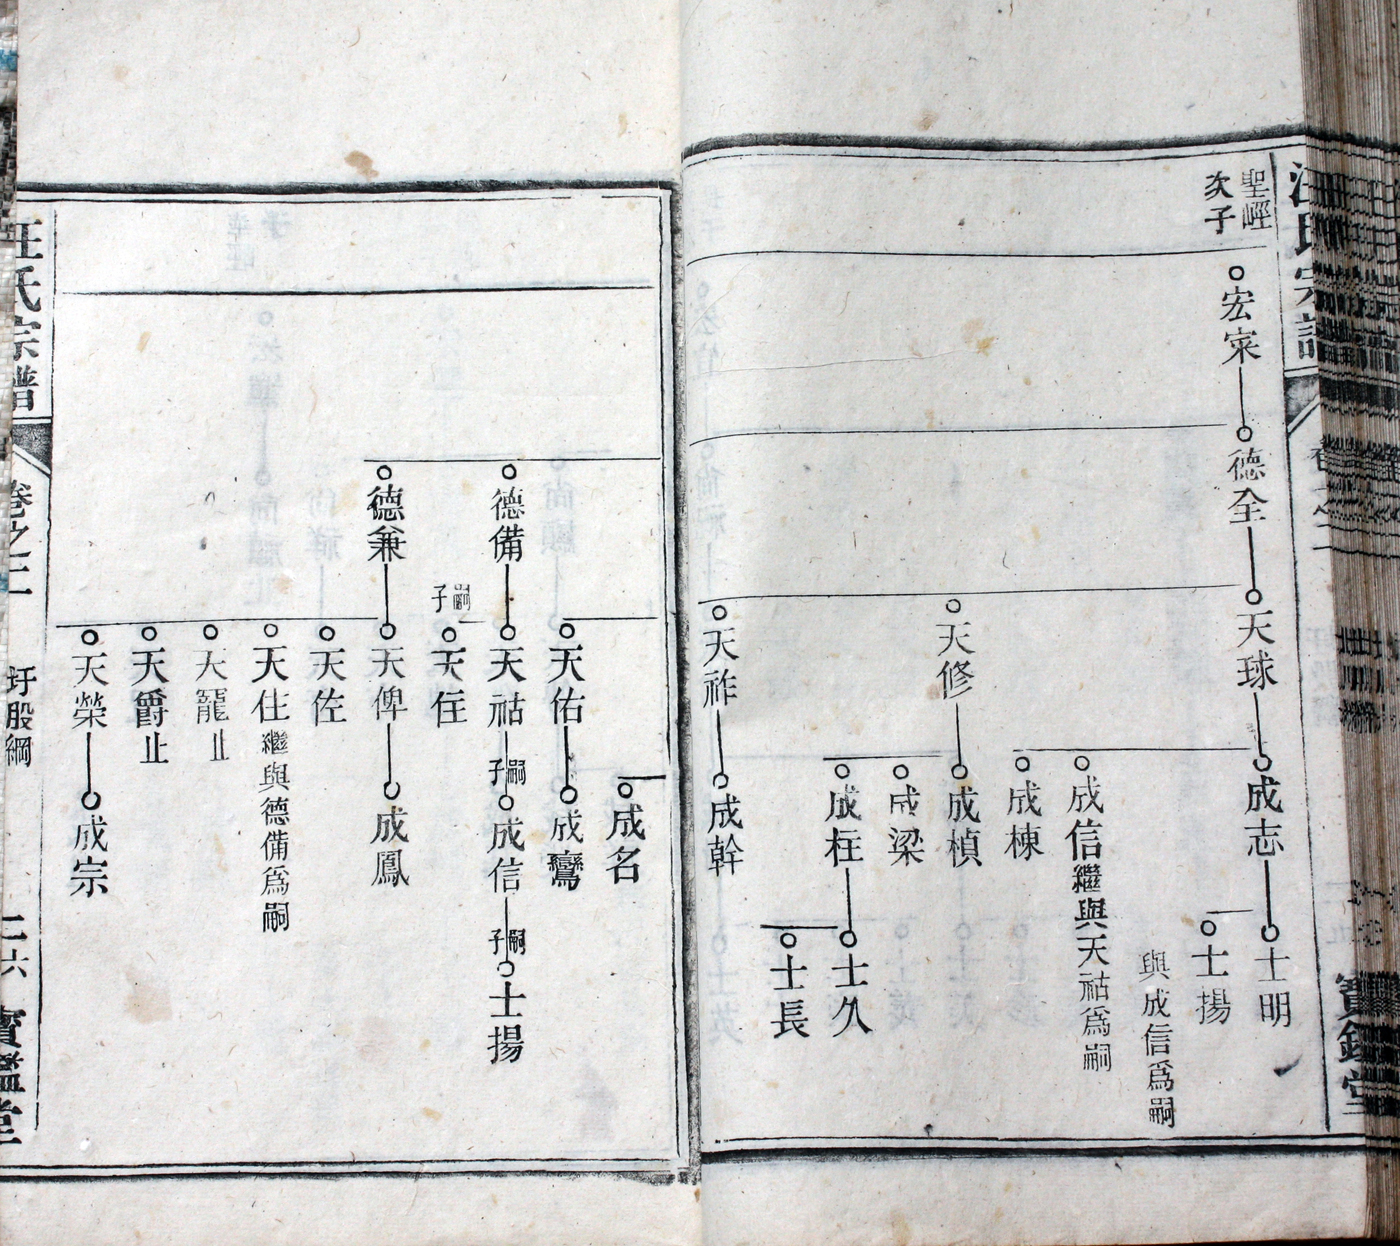 汪氏宗譜
卷之二
寶鑑堂
聖崆
次子
宏寀
德全
天球
成志
士明
士揚
與成信爲嗣
成信繼與天祜爲嗣
成棟
天修
成楨
成梁
成柱
士久
士長
天祚
成幹
成名
天佑
成鸞
德備
天祜
嗣子
成信
嗣子
士揚
嗣子
天住
德兼
天俾
成鳳
天佐
天住繼與德備爲嗣
天寵止
天爵止
天榮
成宗
汪氏宗譜
卷之二
圩股綱
二六
寶鑑堂